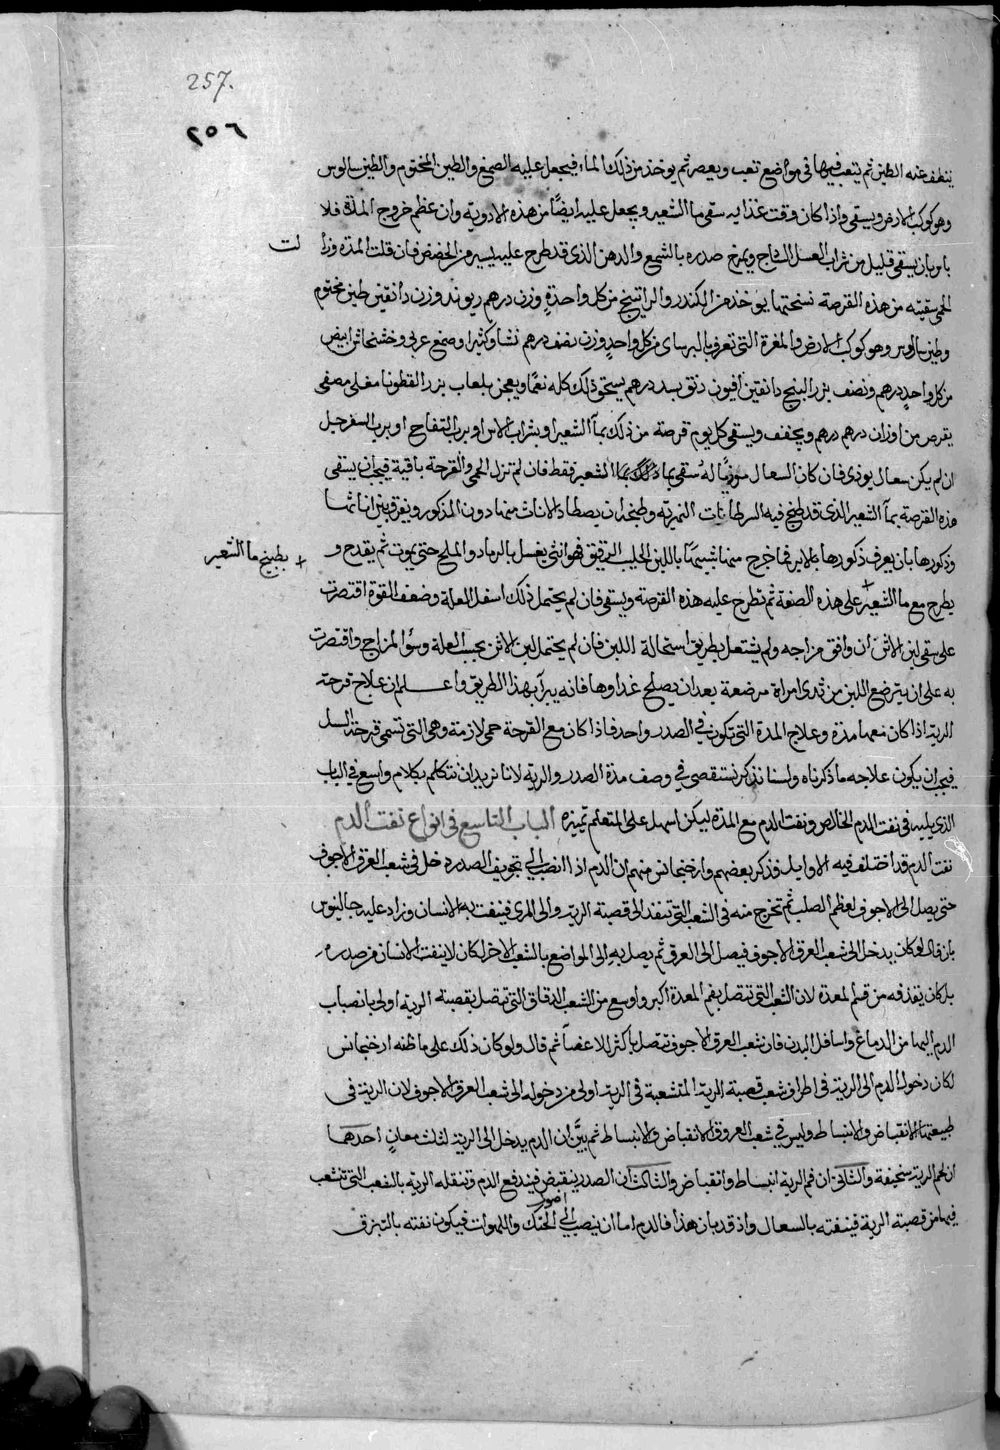 257.
٢٥٦
ينظف عنه الطين ثم يتعب فيها في مواضع تعب ويعصر ثم يوخذ من ذلك الماء فيجعل عليه الصمغ والطين المختوم والطين ساموس
وهو كوكب الارض ويسقى واذا كان وقت غذايه سقى ما الشعير ويجعل عليه ايضًا من هذه الادوية وان عظم خروج المدة فلا
باس بان يسقى قليل من شراب العسل الساذج ويمرخ صدره بالشمع والدهن الذى قد طرح عليه يسير من الحضض فان قلت المدة وزا لت
الحمى سقيته من هذه القرصة نسختها يوخذ من الكندر والراتينج من كل واحدةٍ وزن درهم ريوند وزن دانقين طين مختوم
وطين ساموس وهو كوكب الارض والمغرة التى تعرف بالبرساى من كل واحدٍ وزن نصف درهم نشا وكثيرا وصمغ عربى وخشخاش ابيض
من كل واحدٍ درهم ونصف بزر البنج دانقين افيون دنق بسد درهم يسحق ذلك كله نعمًا ويعجن بلعاب بزر القطونا مغلى مصفى
يقرص من اوزان درهم درهم ويجفف ويسقى كل يوم قرصة من ذلك بمآ الشعير او بشراب الاس او برب التفاح او برب السفرجل
ان لم يكن سعال يوذى فان كان السعال موذيًا له سقى بما الشعير فقط فان لم تزل الحمى والقرحة باقية فيجب ان يسقى
هذه القرصة بمآ الشعير الذى قد طبخ فيه السرطانات النهرية وطبخه ان يصطاد الاناث منها دون المذكور ويفرق بين اناثها
وذكورها بان يعرف ذكورها بالابر فما خرج منها شبيهًا باللبن الحليب الرقيق فهو انثى يغسل بالرماد والملح حتى يموت ثم يقدح و + يطبخ ما الشعير
يطرح مع ما الشعير + على هذه الصفة ثم تطرح عليه هذه القرصة ويسقى فان لم يحتمل ذلك اسفل العلة وضعف القوة اقتصرت
على سقى لبن الاتن ان وافق مزاجه ولم يشتعل بطريق استحالة اللبن فان لم يحتمل لبن الاتن بحسب العلة وسوُ المزاج واقتصرت
به على ان يترضع اللبن من ثدى امراة مرضعة بعد ان يصلح غداوها فانه يبرآ بهذا الطريق واعلم ان علاج قرحة
الرية اذا كان معها مدة وعلاج المدة التى تكون في الصدر واحد فاذا كان مع القرحة حمى لازمة وهى التى تسمى قرحة السل
فيجب ان يكون علاجه ما ذكرناه ولسنا نذكر نستقصى في وصف مدة الصدر والرية لانا نريد ان نتكلم بكلام واسع في الباب
الذى يليه في نفث الدم الخالص ونفث الدم مع المدة ليكن اسهل على المتعلم تميزه الباب التاسع فى انواع نفث الدم
نفث الدم قد اختلف فيه الاوايل فذكر بعضهم وارخنجانس منهم ان الدم اذا انصب الى تجويف الصدر دخل في شعب العرق الاجوف
حتى يصل الى الاجوف لعظم الصلب ثم تخرج منه في الشعب التى تنفذ الى قصبة الرية والى المرى فينفث به الانسان وزاد عليه جالينوس
بان قال لو كان يدخل الى شعب العرق الاجوف فيصل الى العرق ثم يصل به الى المواضع بالشعب الاخر لكان لا ينفث الانسان من صدره
بل كان يقذفه من قبل المعدة لان الشعب التى تتصل بفم المعدة اكبر واوسع من الشعب الدقاق التى تتصل بقصبة الرية اولى بانصباب
الدم اليها من الدماغ واسافل البدن فان شعب العرق الاجوف تتصل باكثر الاعضآ ثم قال ولو كان ذلك على ما ظنه ارخنجانس
لكان دخول الدم الى الرية في اطراف شعب قصبة الرية المتشعبة في الرية اولى من دخوله الى شعب العرق الاجوف لان الرية في
طبيعتها الانقباض والانبساط وليس في شعب العروق الانقباض والانبساط ثم بيَّن ان الدم يدخل الى الرية لثلث معانٍ احدها
ان لحم الرية سخيفة والثانى ان فم الرية انبساط وانقباض والثالث ان الصدر ينقبض فيندفع الدم وتنقله الرية بالشعب التى تتشعب
فيها من قصبة الرية فينفثه بالسعال واذ قد بان هذا فالدم اما ان ينصب الى اصول الحنك واللهوات فيكون نفثه بالتبزق